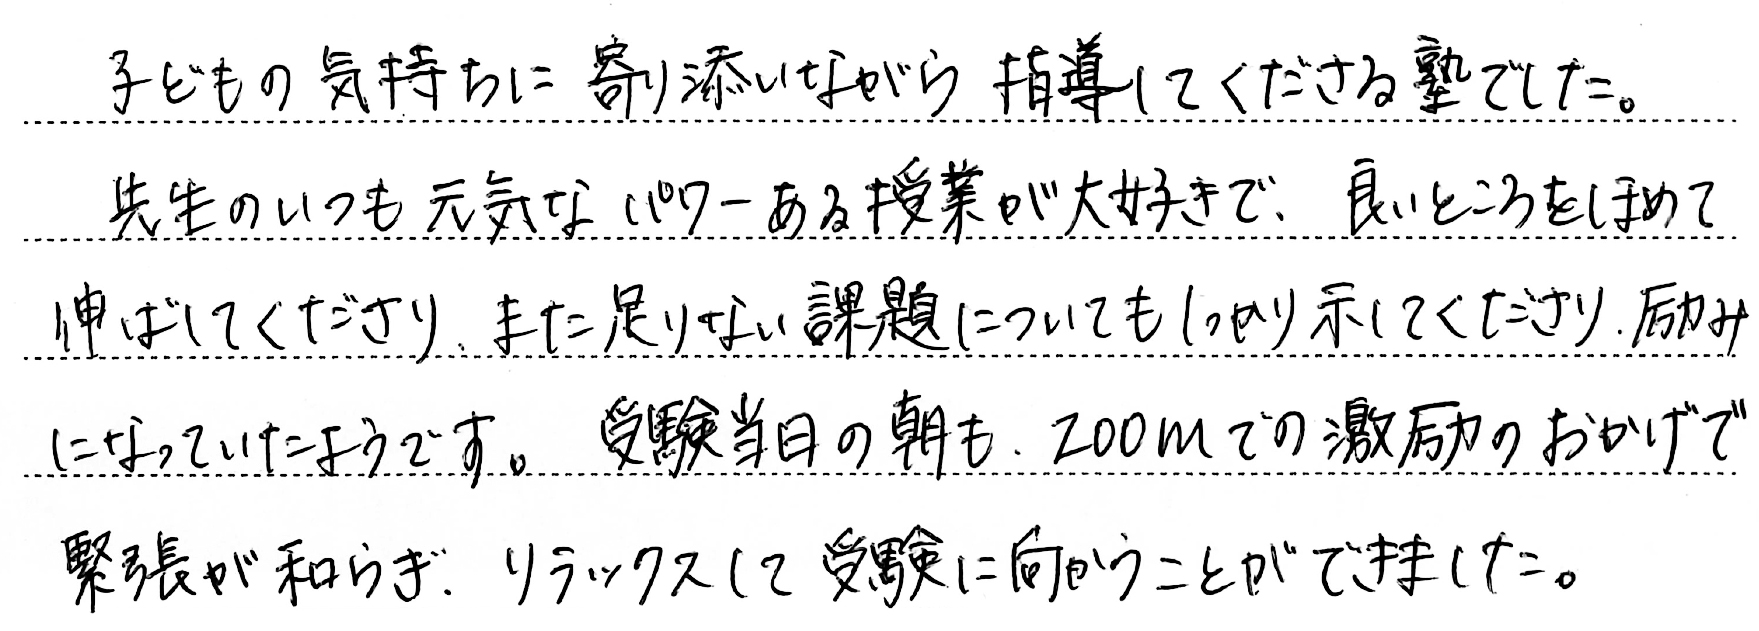 子どもの気持ちに寄り添いながら指導してくださる塾でした。
先生のいつも元気なパワーある授業が大好きで、良いところをほめて
伸ばしてくださり、また足りない課題についてもしっかり示してくださり、励み
になっていたようです。受験当日の朝も、ZOOMでの激励のおかげで
緊張が和らぎ、リラックスして受験に向かうことができました。